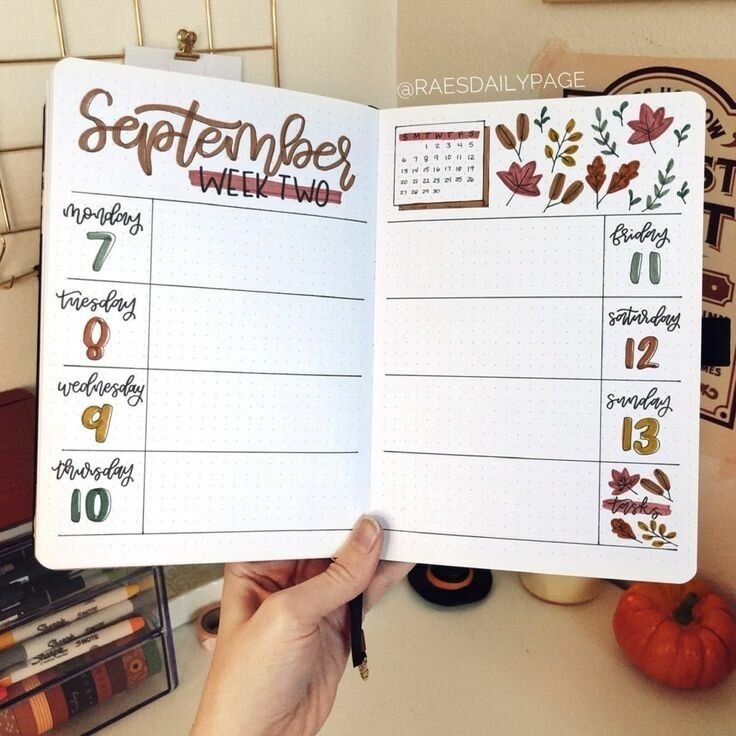 @RAESDAILYPAGE
September
WEEK TWO
monday
7
tuesday
8
wednesday
9
thursday
10
S M T W T F S
1 2 3 4 5
6 7 8 9 10 11 12
13 14 15 16 17 18 19
20 21 22 23 24 25 26
27 28 29 30
friday
11
saturday
12
sunday
13
tasks
Sharpie S-NOTE
Sharpie S-NOTE
Sharpie S-NOTE